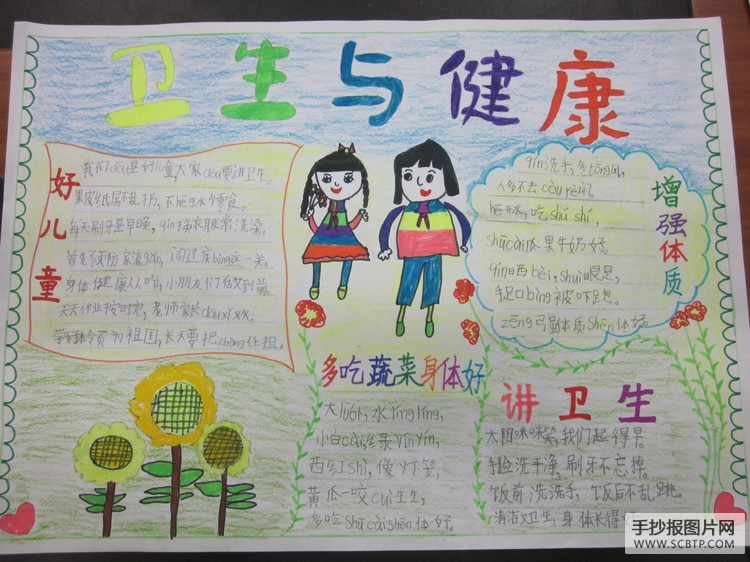 卫生与健康
好儿童
我们dōu是好儿童大家dōu要讲卫生。
果皮纸屑不乱扔,不hē生水少零食。
每天刷牙是早晚,qín换衣服常洗澡。
首先预防
闯过疾bìng这一关。
身体健康人人夸,小朋友们
天天作业按时完,老师家长dōu喜欢。
为祖国,长大要把zhòng任担。
增强体质
qín洗手,多tōng风,
人多不去còu rè闹。
hē开水,吃shú shí,
shū cài瓜果牛奶好。
qín晒bèi,shuì眠足,
手足口bìng被吓跑。
zēng弓虽体质shēn体好。
多吃蔬菜身体好
大luó卜,水líng líng,
小白cài,绿yīn yīn,
西红shì,像灯笼,
黄瓜一咬cuì生生,
多吃shū cài shēn体好。
讲卫生
太阳咪咪笑,我们起得早。
手脸洗干净,刷牙不忘掉。
饭前洗洗手,饭后不乱跳。
清洁又卫生,身体长得
手抄报图片网
WWW.SCBTP.COM